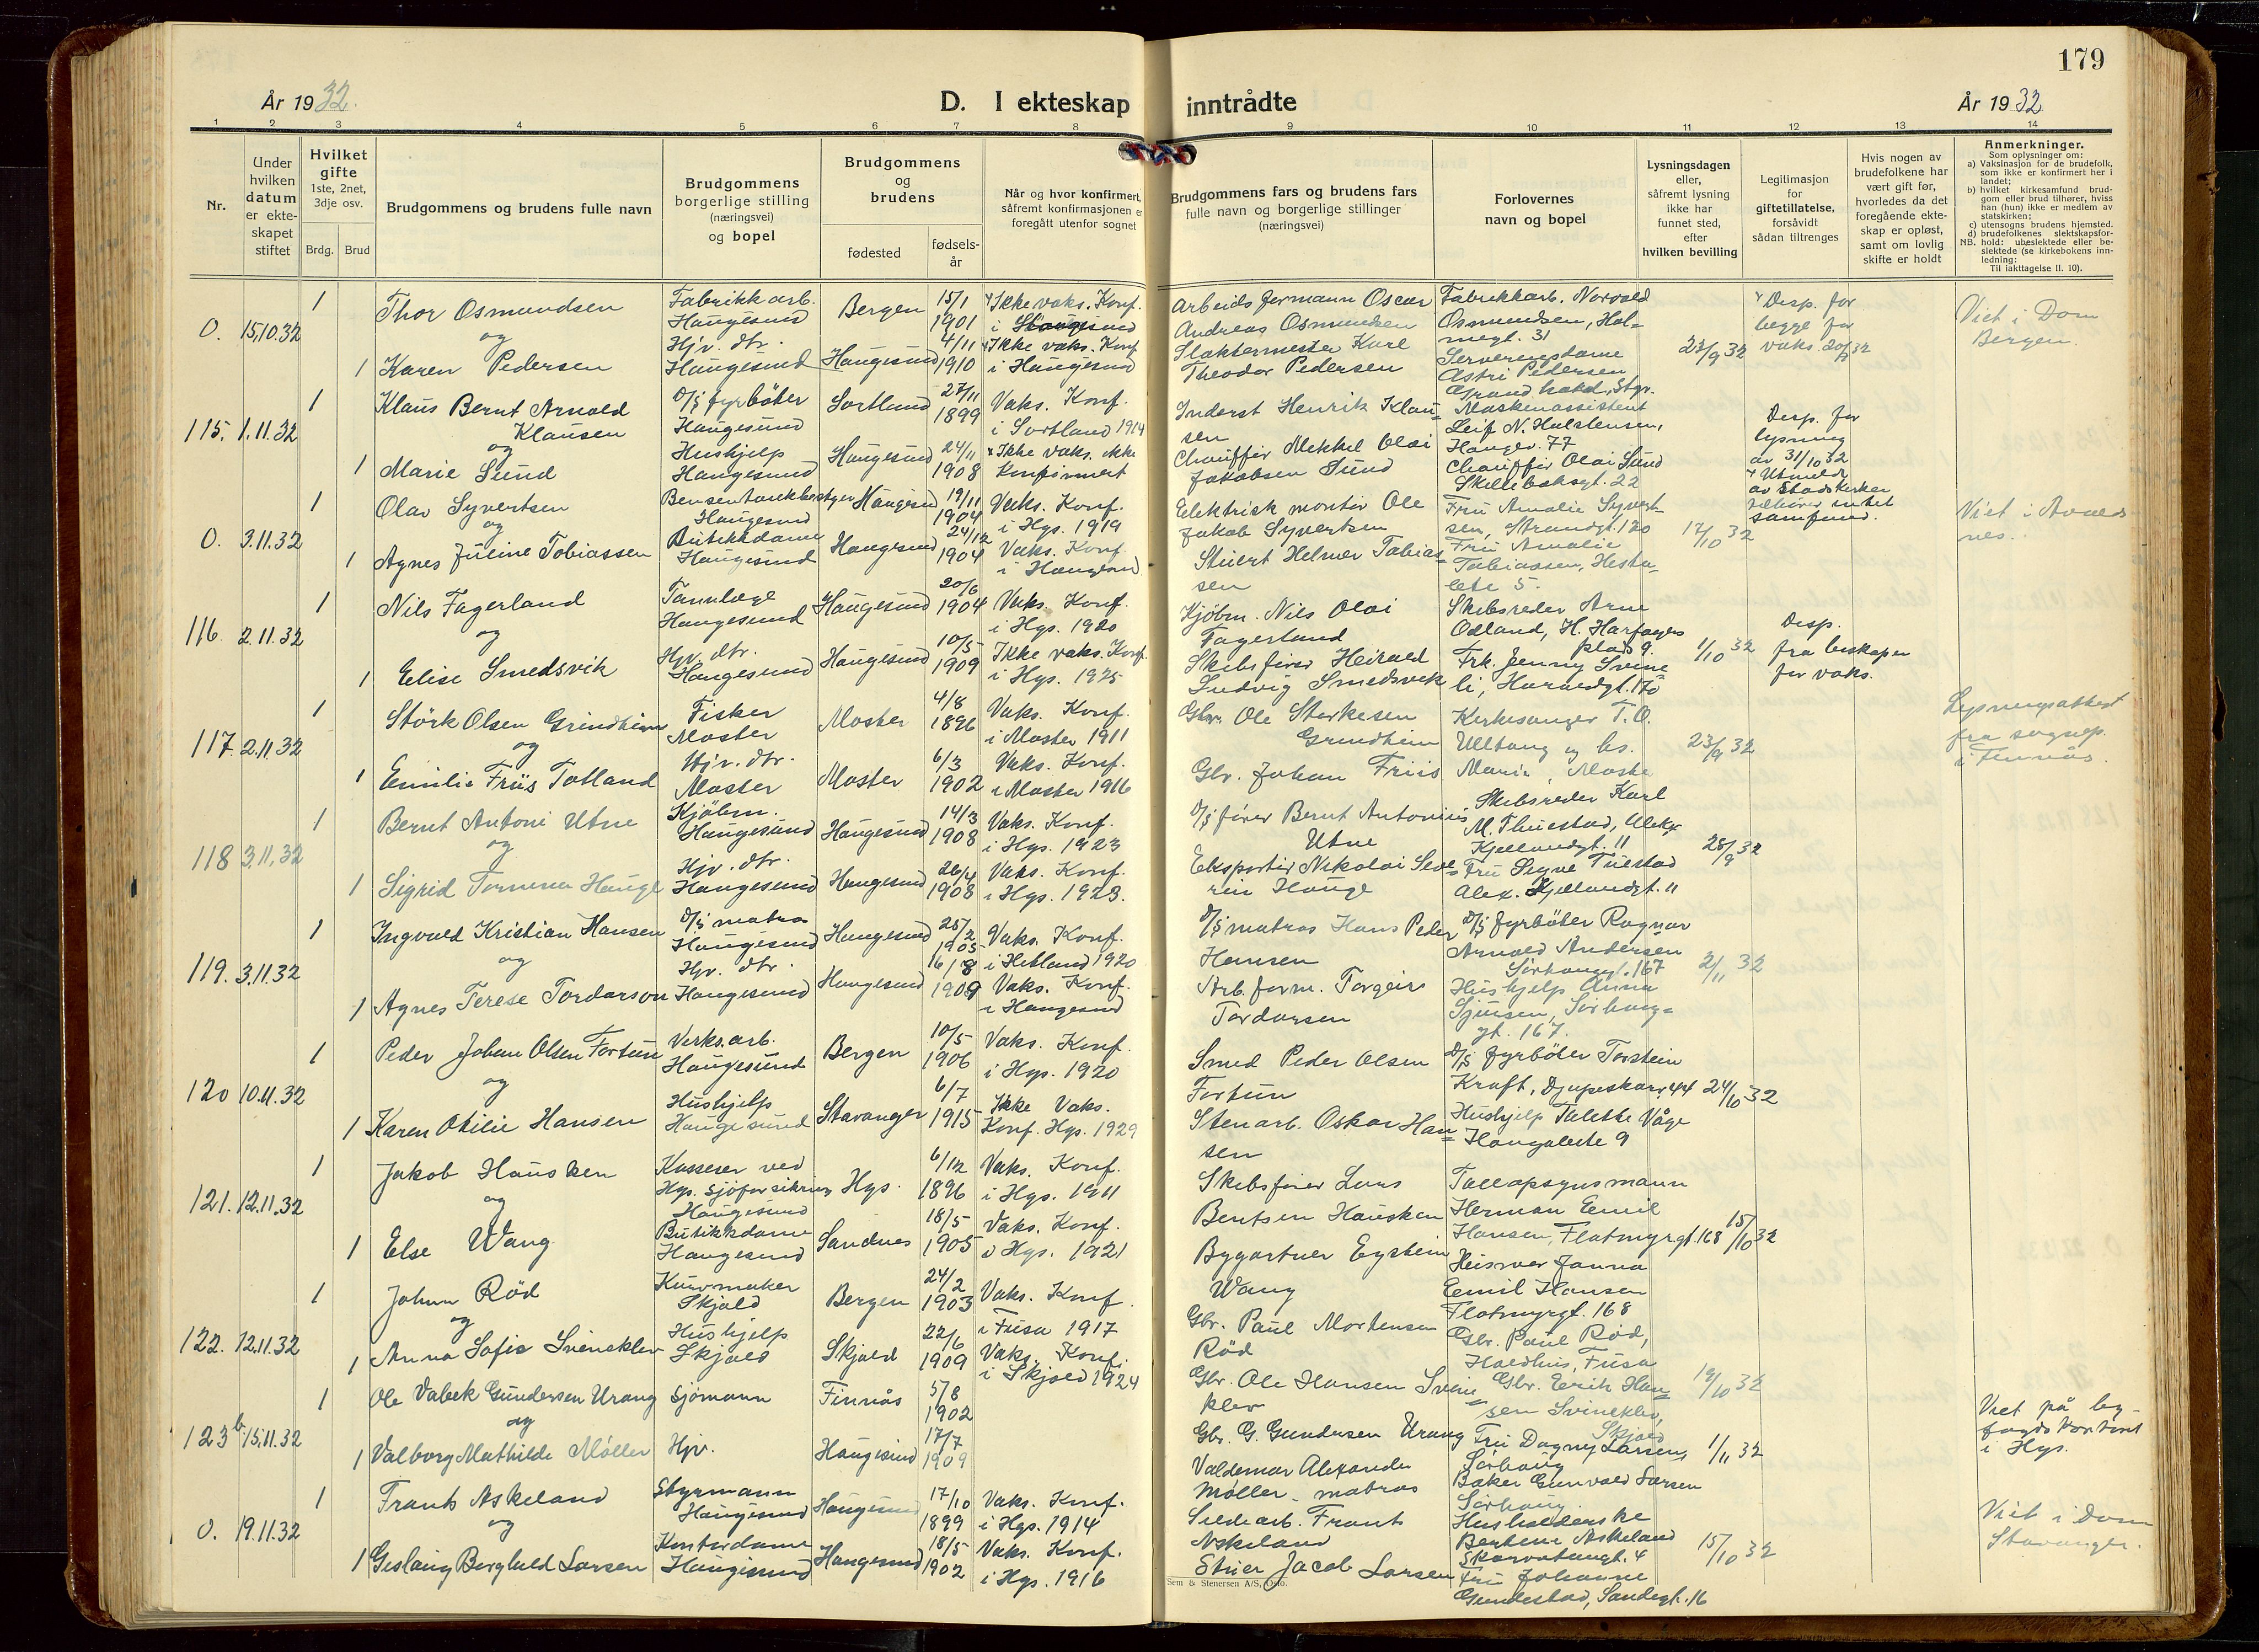 179
År 1932.
D. I ekteskap inntrådte
År 1932
1 2 3 4 5 6 7 8 9 10 11 12 13 14
Nr.
Under hvilken datum er ekteskapet stiftet
Hvilket gifte 1ste, 2net, 3dje osv.
Brdg. Brud
Brudgommens og brudens fulle navn
Brudgommens borgerlige stilling (næringsvei) og bopel
Brudgommens og brudens
fødested
fødselsår
Når og hvor konfirmert, såfremt konfirmasjonen er foregått utenfor sognet
Brudgommens fars og brudens fars fulle navn og borgerlige stillinger (næringsvei)
Forlovernes navn og bopel
Lysningsdagen eller, såfremt lysning ikke har funnet sted, efter hvilken bevilling
Legitimasjon for giftetillatelse, forsåvidt sådan tiltrenges
Hvis nogen av brudefolkene har vært gift før, hvorledes da det foregående ekteskap er opløst, samt om lovlig skifte er holdt
Anmerkninger.
Som oplysninger om:
a) Vaksinasjon for de brudefolk, som ikke er konfirmert her i landet;
b) hvilket kirkesamfund brudgom eller brud tilhører, hviss han (hun) ikke er medlem av statskirken;
c) utensogns brudens hjemsted.
d) brudefolkenes slektskapsforhold: ubeslektede eller beslektede (se kirkebokens innledning:
NB.
Til iakttagelse II. 10).
0. 15.10.32
1 Thor Osmundsen
og
1 Karen Pedersen
Fabrikkarb. Haugesund
Hjv. dtr. Haugesund
Bergen 15/1 1901
Haugesund 4/11 1910
Ikke vaks. Konf. i Haugesund
Ikke vaks. Konf. i Haugesund
Arbeidsformann Oscar Andreas Osmundsen
Slaktermester Karl Theodor Pedersen
Fabrikkarb. Norvald Osmundsen, Holmegt. 31
Serveringsdame Astri Pedersen Grand hotel, Stgr.
23/9 32
Disp. for begge for vaks. 20/9 32
Viet i Dom Bergen.
115. 1.11.32
1 Klaus Bernt Arnold Klausen
og
1 Marie Sund
D/s fyrböter Haugesund
Hushjelp Haugesund
Sortland 27/11 1899
Haugesund 24/11 1908
Vaks. Konf. i Sortland 1914
Ikke vaks. ikke konfirmert
Inderst Henrik Klausen
Chauffør Mekkel Olai Jakobsen Sund
Maskinassistent Leif N. Halstensen, Haugev. 77
Chauffør Olai Sund Skillebeksgt. 22
Disp. for lysning av 31/10 32
Utmeldt av Stadskirken tilhører intet samfund.
0. 3.11.32
1 Olav Syvertsen
og
1 Agnes Juline Tobiassen
Bensentankbestyrer Haugesund
Butikkdame Haugesund
Haugesund 19/11 1904
Haugesund 24/12 1904
Vaks. Konf. i Hgs. 1919
Vaks. Konf. i Haugesund
Elektrisk montør Ole Jakob Syvertsen
Stuert Helmer Tobiassen
Fru Amalie Syvertsen, Strandgt. 120
Fru Amalie Tobiassen, Hestaleite 5.
17/10 32
Viet i Avaldsnes.
116. 2.11.32
1 Nils Fagerland
og
1 Elise Smedsvik
Tannlæge Haugesund
Hjv. dtr. Haugesund
Haugesund 20/6 1904
Haugesund 10/5 1909
Vaks. Konf. i Hgs. 1920
Ikke vaks. Konf. i Hgs. 1925
Kjøbm. Nils Olai Fagerland
Skibsfører Heirald Ludvig Smedsvik
Skibsreder Arne Odland, H. Harfagers plads 9.
Frk. Jenny Svineli, Haraldgt. 170
1/10 32
Disp. fra biskapen for vaks.
117. 2.11.32
1 Störk Olsen Grindheim
og
1 Emilie Friis Totland
Fisker Moster
Hjv. dtr. Moster
Moster 4/8 1896
Moster 6/3 1902
Vaks. Konf. i Moster 1911
Vaks. Konf. i Moster 1916
Gbr. Ole Storkesen Grindheim
Gbr. Johan Friis
Kirkesanger T. O. Ulltang og hs. Marie, Moster
23/9 32
Lysningsattest fra sognep. i Finnås.
118 3.11.32
1 Bernt Antoni Utne
og
1 Sigrid Tomine Hauge
Kjöbm. Haugesund
Hjv. dtr. Haugesund
Haugesund 14/3 1908
Haugesund 26/4 1908
Vaks. Konf. i Hgs. 1923
Vaks. Konf. i Hgs. 1923.
D/s fører Bernt Antonius Utne
Eksportør Nikolai Severin Hauge
Skibsreder Karl M. Thuestad, Alex. Kjellandgt. 11
Fru Signe Tuestad Alex. Kjellandgt. 11
28/9 32
119. 3.11.32
1 Ingvald Kristian Hansen
og
1 Agnes Terese Tordarson
D/s matros Haugesund
Hjv. dtr. Haugesund
Haugesund 25/2 1905
Haugesund 16/8 1909
Vaks. Konf. i Hetland 1920
Vaks. Konf. i Haugesund
D/s matros Hans Peder Hansen
Arb. form. Torgeir Tordarsen
D/s fyrböter Ragnar Arnold Andersen Sørhauggt. 167
Hushjelp Anna Sjursen, Sørhauggt. 167.
2/11 32
120 10.11.32
1 Peder Johan Olsen Fortun
og
1 Karen Otilie Hansen
Verks.arb. Haugesund
Hushjelp Haugesund
Bergen 10/5 1906
Stavanger 6/7 1915
Vaks. Konf. i Hgs. 1920
Ikke Vaks. Konf. Hgs. 1929
Smed Peder Olsen Fortun
Stenarb. Oskar Hansen
D/s fyrböter Torstein Kraft, Djupeskarv. 44
Hushjelp Talette Våge Haugaleite 9
24/10 32
121. 12.11.32
1 Jakob Hausken
og
1 Else Wang
Kasserer ved Hgs. Sjøforsikring Haugesund
Butikkdame Haugesund
Hgs. 6/12 1896
Sandnes 18/5 1905
Vaks. Konf. i Hgs. 1911
Vaks. Konf. i Hgs. 1921
Skibsfører Lars Bentsen Hausken
Bygartner Eystein Wang
Tollopsynsmann Herman Emil Hansen, Flotmyrgt. 168
Heismor Janna Emil Hansen Flotmyrgt. 168
15/10 32
122. 12.11.32
1 Johan Röd
og
1 Anna Sofie Svineklev
Kurvmaker Skjold
Hushjelp Skjold
Bergen 24/2 1903
Skjold 22/6 1909
Vaks. Konf. i Fusa 1917
Vaks. Konf. i Skjold 1924
Gbr. Paul Mortensen Röd
Gbr. Ole Hansen Svineklev
Gbr. Paul Röd, Holdhus, Fusa
Gbr. Erik Hansen Svineklev, Skjold
19/10 32
123 b. 15.11.32
1 Ole Vabek Gundersen Urang
og
1 Valborg Mathilde Möller
Sjömann
Hjv.
Finnås 5/8 1902
Haugesund 17/7 1909
Gbr. G. Gundersen Urang
Valdemar Alexander Möller - matros
Fru Dagny Larsen, Sørhaug
Baker Gunvald Larsen Sørhaug.
1/11 32
Viet på byfogdkontoret i Hgs.
0. 19.11.32
1 Frants Askeland
og
1 Gislaug Borghild Larsen
Styrmann Haugesund
Kontordame Haugesund
Haugesund 17/10 1899
Haugesund 18/5 1902
Vaks. Konf. i Hgs. 1914
Vaks. Konf. i Hgs. 1916
Sildearb. Frants Askeland
Stuer Jacob Larsen
Husholderske Bertine Askeland Skarvatungt. 4
Fru Johanne Gundestad, Sandesgt. 16
15/10 32
Viet i Dom Stavanger.
Sem & Stenersen A/S, Oslo.